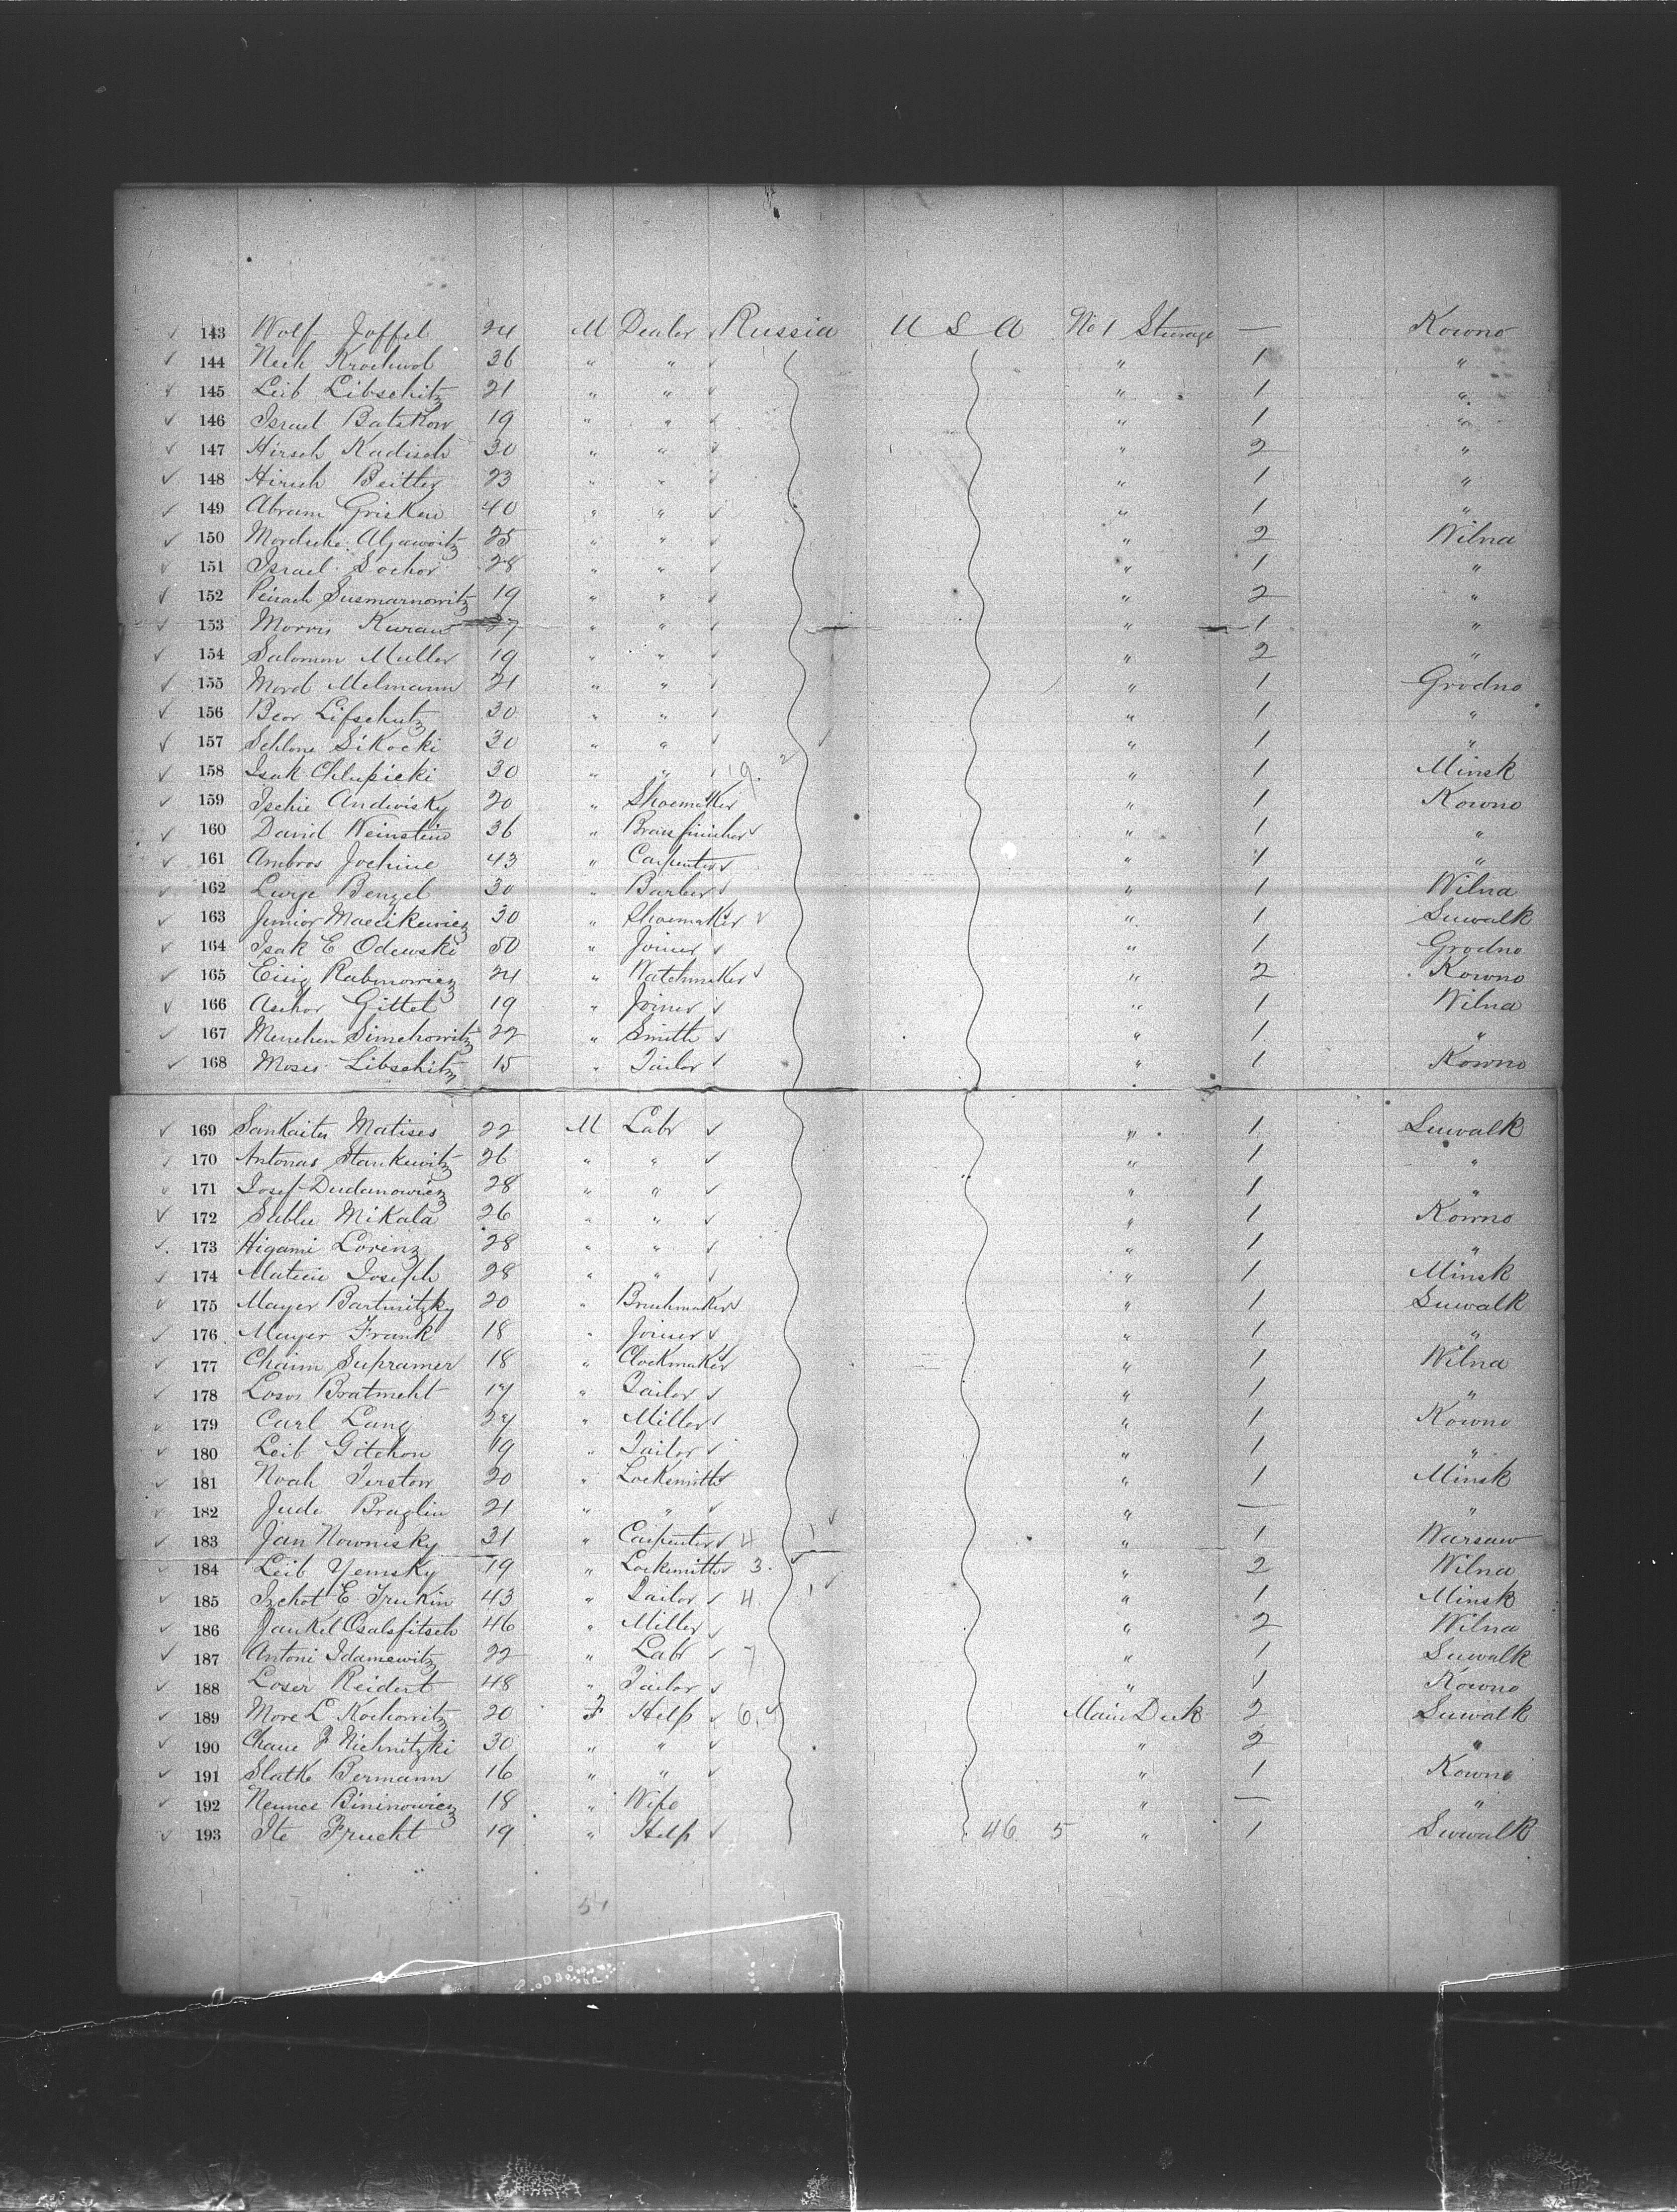 143 Wolf Joffel 24 M Dealer Russia U S A No 1 Steerage — Kowno
144 Nech Krochwol 36 " " " 1 "
145 Leib Libschitz 21 " " " 1 "
146 Israel Batzkow 19 " " " 1 "
147 Hirsch Kadisch 30 " " " 2 "
148 Hirsch Beitler 23 " " " 1 "
149 Abram Grisken 40 " " " 1 "
150 Mordsche 25 " " " 2 Wilna
151 Israel Sochor 28 " " " 1 "
152 Susmarnowitz 19 " " " 2 "
153 Morris Kuran 27 " " " 1 "
154 Salomon Muller 19 " " " 2 "
155 Mord Melmann 21 " " " 1 Grodno
156 Beor Lifschutz 30 " " " 1 "
157 Schlone Sikocki 30 " " " 1 "
158 Isak Chlupicki 30 " " 19 2 " 1 Minsk
159 Ischie Andwisky 20 " Shoemaker " 1 Kowno
160 David Weinstein 36 " Brassfinisher " 1 "
161 Ambros Jochine 43 " Carpenter " 1 "
162 Lurge Benzel 30 " Barber " 1 Wilna
163 Junior Macikewicz 30 " Shoemaker " 1 Suwalk
164 Isak E Odewski 50 " Joiner " 1 Grodno
165 Eisig Rabinowicz 24 " Watchmaker " 2 Kowno
166 Aschor Gittel 19 " Joiner " 1 Wilna
167 Menchen Simchowitz 22 " Smith " 1 "
168 Moses Libschitz 15 " Tailor " 1 Kowno
169 Sankaites Matises 22 M Labr " 1 Suwalk
170 Antonas Stankewitz 26 " " " 1 "
171 Josef Dudanowicz 28 " " " 1 "
172 Sublu Mikala 26 " " " 1 Kowno
173 Higami Lorenz 28 " " " 1 "
174 Joseph 28 " " " 1 Minsk
175 Mayer Bartnitzky 20 " Brushmaker " 1 Suwalk
176 Mayer Frank 18 " Joiner " 1 "
177 Chaim Supramer 18 " Clockmaker " 1 Wilna
178 Losor Bratmeht 17 " Tailor " 1 "
179 Carl Lang 27 " Miller " 1 Kowno
180 Leib Gitchon 19 " Tailor " 1 "
181 Noah Terstow 20 " Locksmith " 1 Minsk
182 Jude Braglin 21 " " " — "
183 Jan Nownisky 31 " Carpenter 4 1 " 1 Warsaw
184 Leib Yemsky 19 " Locksmith 3. " 2 Wilna
185 Izchot E Trukin 43 " Tailor 4 1 " 1 Minsk
186 Jankel Osalsfitsch 46 " Miller " 2 Wilna
187 Antoni Idamewitz 22 " Labr 7 " 1 Suwalk
188 Loser Reidert 48 " Tailor " 1 Kowno
189 More L Kochowitz 20 F Help 6. Main Deck 2 Suwalk
190 Chaue F Nichnitzki 30 " " " 2 "
191 Slatke Bermann 16 " " " 1 Kowno
192 Neunce Bininowicz 18 " Wife " — "
193 Ite Frucht 19 " Help 46 5 " 1 Suwalk
51